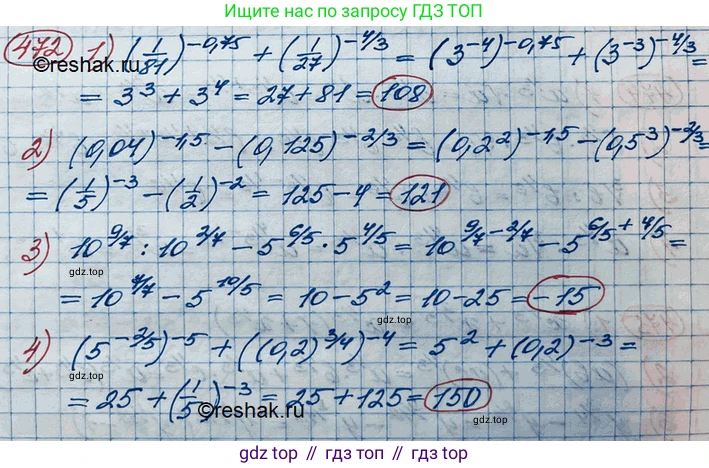 Ищите нас по запросу ГДЗ ТОП
472 1) (1/81)^-0,75 + (1/27)^-4/3 = (3^-4)^-0,75 + (3^-3)^-4/3 =
©reshak.ru
= 3^3 + 3^4 = 27 + 81 = 108
2) (0,04)^-1,5 - (0,125)^-2/3 = (0,2^2)^-1,5 - (0,5^3)^-2/3 =
= (1/5)^-3 - (1/2)^-2 = 125 - 4 = 121
3) 10^9/7 : 10^2/7 - 5^6/5 · 5^4/5 = 10^9/7-2/7 - 5^6/5+4/5 =
gdz.top gdz.top
= 10^7/7 - 5^10/5 = 10 - 5^2 = 10 - 25 = -15
4) (5^-2/5)^-5 + ((0,2)^3/4)^-4 = 5^2 + (0,2)^-3 =
gdz.top
= 25 + (1/5)^-3 = 25 + 125 = 150
©reshak.ru
gdz.top // гдз.топ // gdz.top